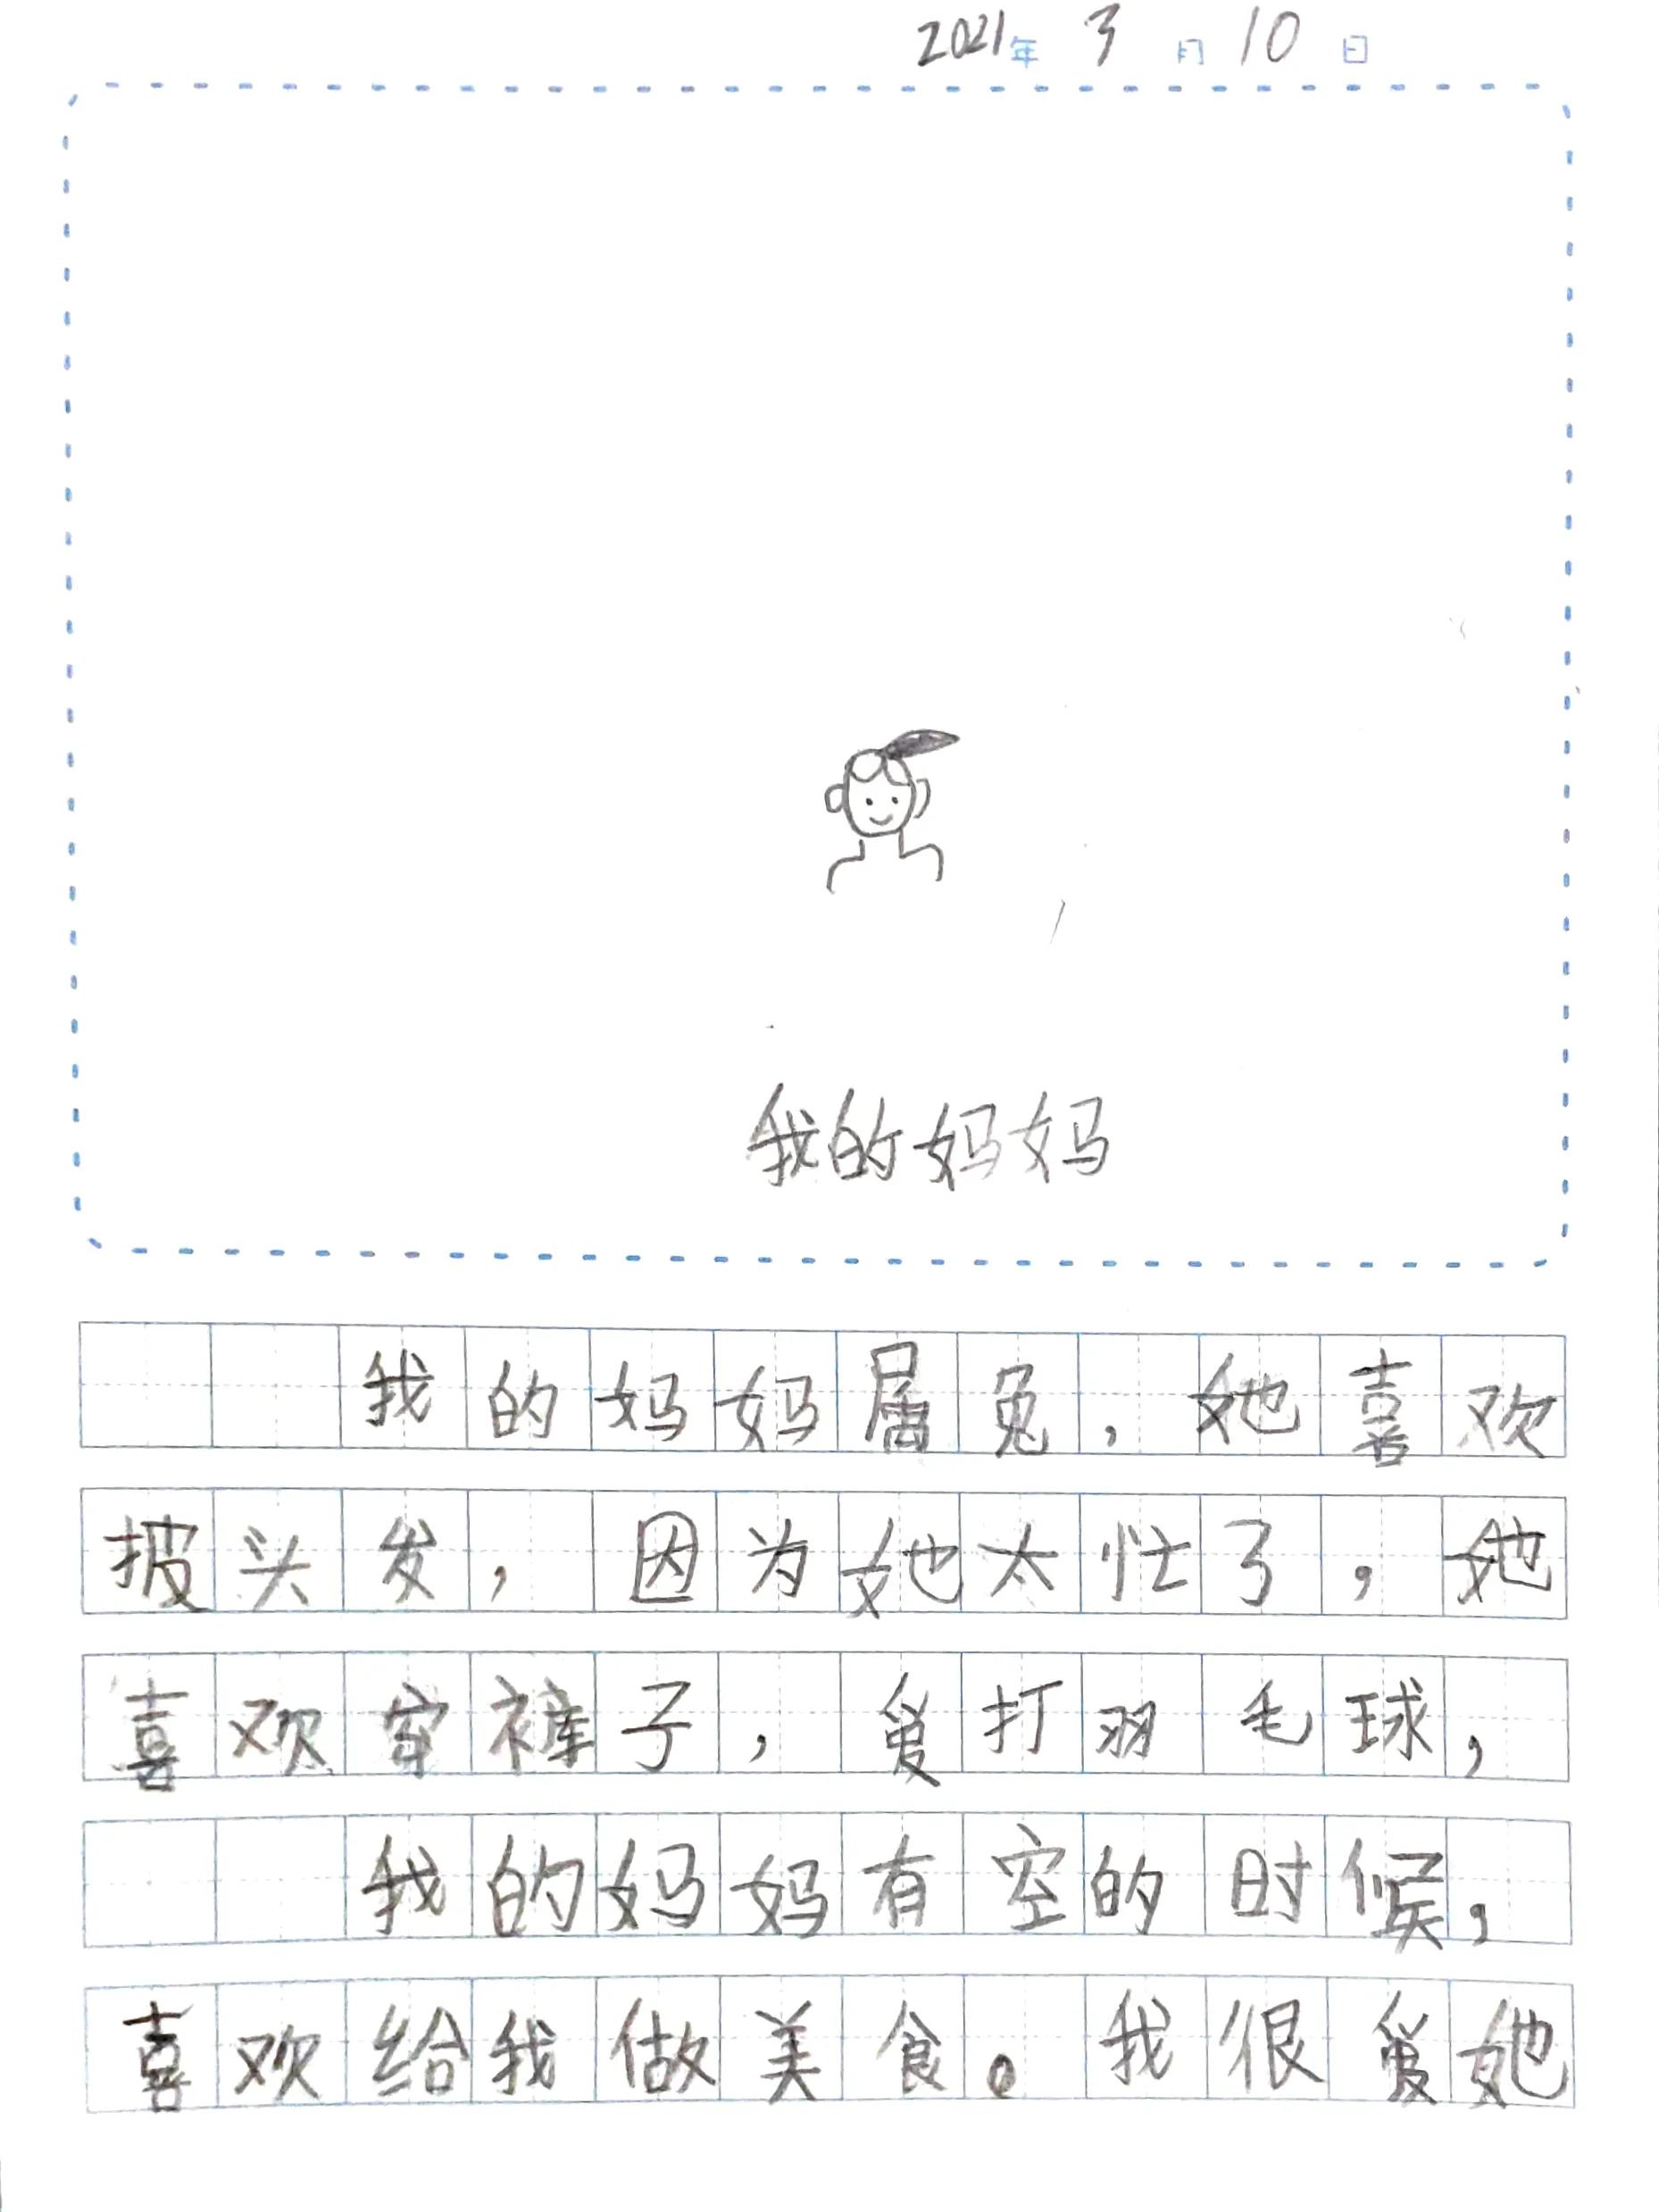 2021年3月10日
我的妈妈
我的妈妈属兔，她喜欢
披头发，因为她太忙了，她
喜欢穿裤子，爱打羽毛球，
我的妈妈有空的时候，
喜欢给我做美食。我很爱她